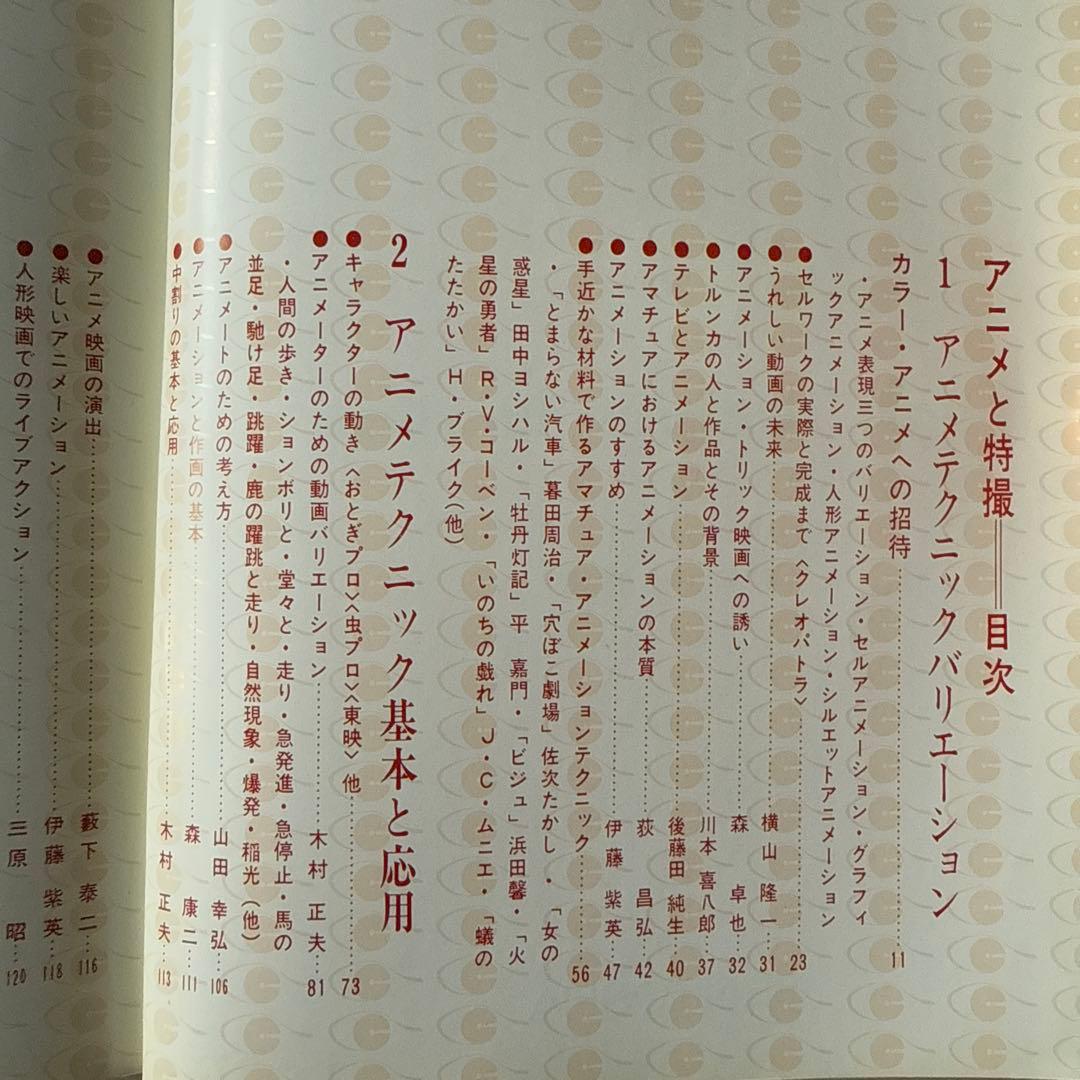 アニメと特撮══目次
1 アニメテクニックバリエーション
カラー・アニメへの招待…………11
・アニメ表現三つのバリエーション・セルアニメーション・グラフィ
ックアニメーション・人形アニメーション・シルエットアニメーション
●セルワークの実際と完成まで〈クレオパトラ〉…………23
●うれしい動画の未来…………横山隆一…31
●アニメーション・トリック映画への誘い…………森 卓也…32
●トルンカの人と作品とその背景…………川本喜八郎…37
●テレビとアニメーション…………後藤田純生…40
●アマチュアにおけるアニメーションの本質…………荻 昌弘…42
●アニメーションのすすめ…………伊藤紫英…47
●手近かな材料で作るアマチュア・アニメーションテクニック…………56
・「とまらない汽車」暮田周治・「穴ぼこ劇場」佐次たかし・「女の
惑星」田中ヨシハル・「牡丹灯記」平 嘉門・「ビジュ」浜田馨・「火
星の勇者」R・V・コーベン・「いのちの戯れ」J・C・ムニエ・「蟻の
たたかい」H・ブライク(他)
2 アニメテクニック基本と応用
●キャラクターの動き〈おとぎプロ〉〈虫プロ〉〈東映〉他…………73
●アニメーターのための動画バリエーション…………木村正夫…81
・人間の歩き・ションボリと・堂々と・走り・急発進・急停止・馬の
並足・馳け足・跳躍・鹿の躍跳と走り・自然現象・爆発・稲光(他)
●アニメートのための考え方…………山田幸弘…106
●アニメーションと作画の基本…………森 康二…111
●中割りの基本と応用…………木村正夫…113
●アニメ映画の演出…………藪下泰二…116
●楽しいアニメーション…………伊藤紫英…118
●人形映画でのライブアクション…………三原 昭…120